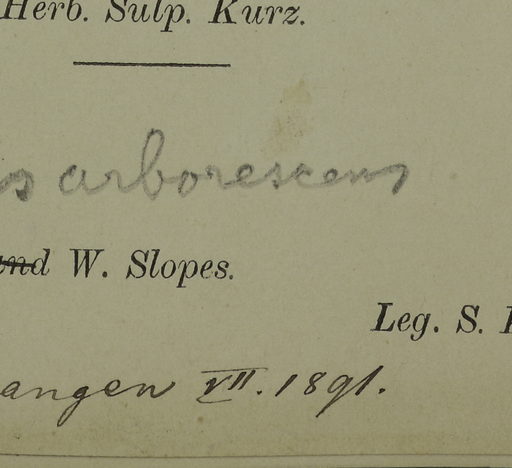 Herb. Sulp. Kurz.
s arborescens
and W. Slopes.
Leg. S.
angen VII. 1891.